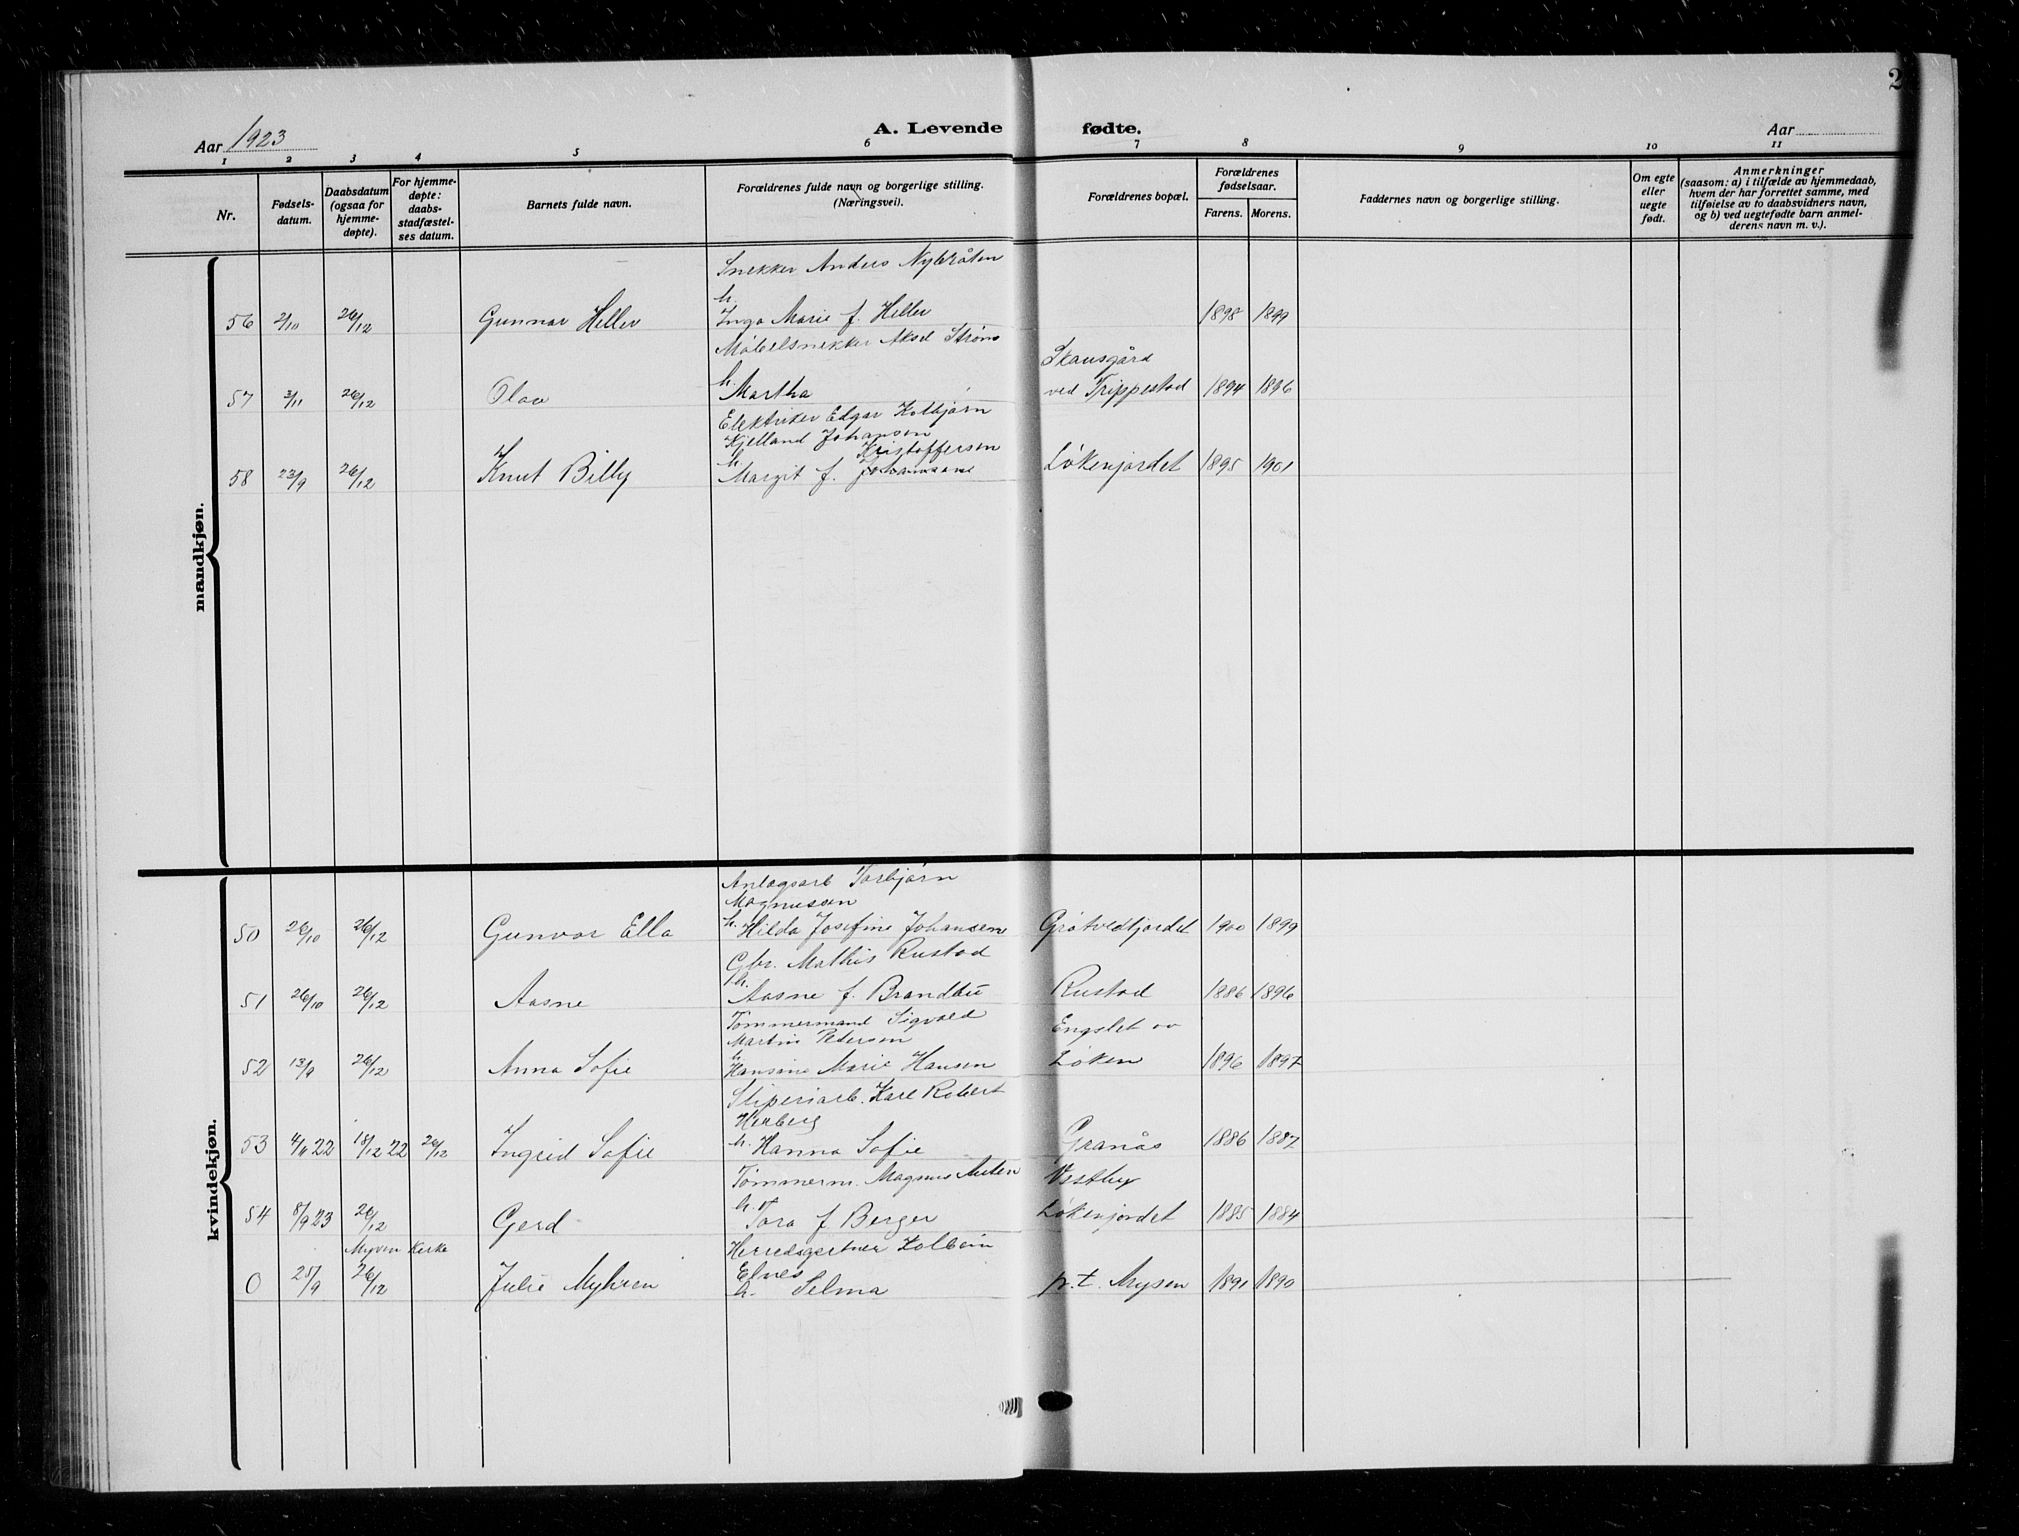 2
A. Levende fødte.
Aar 1923
Aar
1 2 3 4 5 6 7 8 9 10 11
Nr.
Fødsels-
datum.
Daabsdatum
(ogsaa for
hjemme-
døpte).
For hjemme-
døpte:
daabs-
stadfæstel-
ses datum.
Barnets fulde navn.
Forældrenes fulde navn og borgerlige stilling.
(Næringsvei).
Forældrenes bopæl.
Forældrenes
fødselsaar.
Farens. Morens.
Faddernes navn og borgerlige stilling.
Om egte
eller
uegte
født.
Anmerkninger
(saasom: a) i tilfælde av hjemmedaab,
hvem der har forrettet samme, med
tilføielse av to daabsvidners navn,
og b) ved uegtefødte barn anmel-
derens navn m. v.).
mandkjøn.
Snekker Anders Nybråten
h.
56 2/10 26/12 Gunnar Heller Inga Marie f. Heller 1898 1899
Møbelsnekker Aksel Strøm
Skausgård
h.
57 3/11 26/12 Olav Martha ved Trippestad 1894 1896
Elektriker Edgar Kolbjørn
Kjelland Johansen
h. Kristoffersen
58 23/9 26/12 Knut Billy Margit f. Løkenjordet 1895 1901
kvindekjøn.
Anlægsarb Torbjørn
Magnussen
50 26/10 26/12 Gunvor Ella h. Hilda Josefine Johansen Gråtvedtjordet 1900 1899
Gbr. Mathis Rustad
h.
51 26/10 26/12 Aasne Aasne f. Brandbu Rustad 1886 1896
Tømmermand Sigvald Engslet av
Martin Petersen
h.
52 13/9 26/12 Anna Sofie Hansine Marie Hansen Løken 1896 1897
Sliperiarb. Karl Robert
Herberg
53 4/11 22 18/12 22 26/12 Ingrid Sofie h. Hanna Sofie Granås 1886 1887
Tømmerm. Magnus Auten Vestby
54 8/9 23 26/12 Gerd h. Tora f Berger Løkenjordet 1885 1884
Mysen Kirke Herredsgartner Kolbein
Elnes
0 25/9 26/12 Julie Myhren h. Selma p.t. Mysen 1891 1890